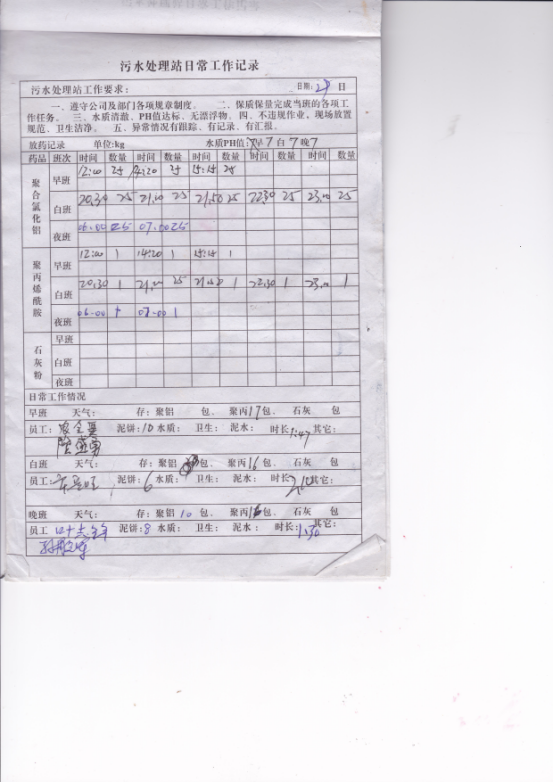 污水处理站日常工作记录
污水处理站工作要求： 日期：27日
一、遵守公司及部门各项规章制度。 二、保质保量完成当班的各项工
作任务。 三、水质清澈、PH值达标、无漂浮物。四、不违规作业。现场放置
规范、卫生洁净。 五、异常情况有跟踪、有记录、有汇报。
放药记录 单位:kg 水质PH值:早7白7晚7
药品 班次 时间 数量 时间 数量 时间 数量 时间 数量 时间 数量
聚合氯化铝
早班 12:00 25 14:20 25 15:15 25
白班 20.30 25 21.00 25 21.50 25 22.30 25 23.00 25
夜班 06.00 25 07.00 25
聚丙烯酰胺
早班 12:00 1 14:20 1 15:15 1
白班 20.30 1 21.00 25 21.50 1 22.30 1 23.00 1
夜班 06-00 1 07-00 1
石灰粉
早班
白班
夜班
日常工作情况
早班 天气： 存：聚铝 包， 聚丙17包， 石灰 包
员工： 泥饼：10 水质： 卫生： 泥水： 时长1:47 其它：
白班 天气： 存：聚铝 包， 聚丙16包， 石灰 包
员工： 泥饼：6 水质： 卫生： 泥水： 时长 其它：
晚班 天气： 存：聚铝10包， 聚丙 包， 石灰 包
员工 泥饼：8 水质： 卫生： 泥水： 时长：1.30 其它：